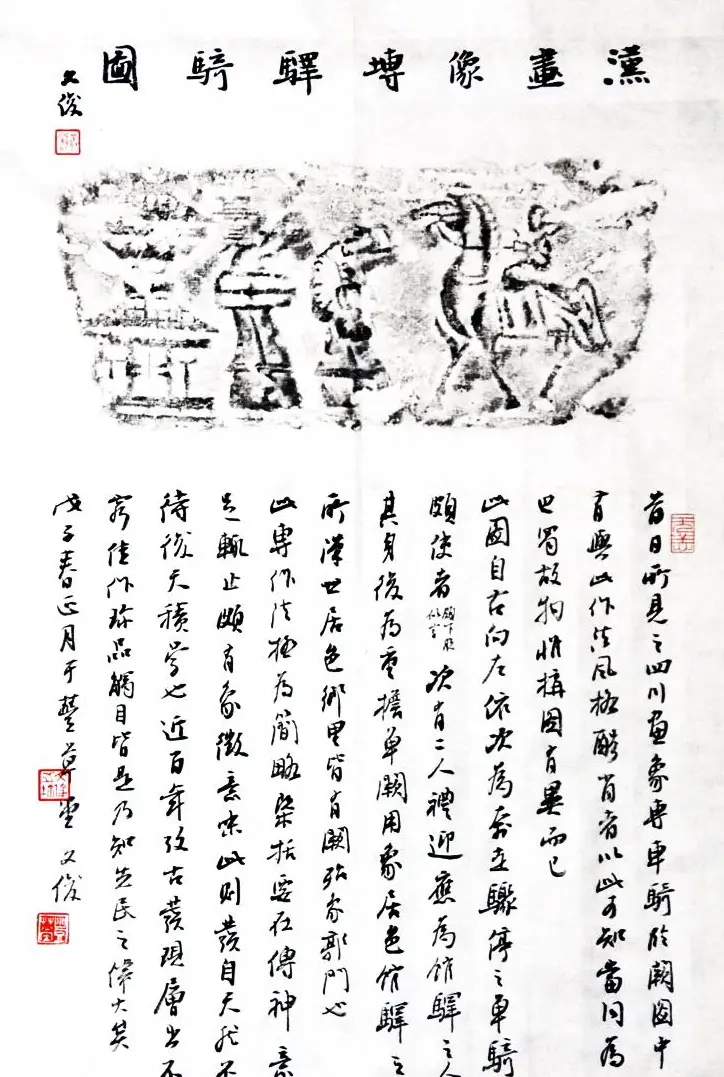 漢畫像塼驛騎圖
文俊
昔日所見之四川畫象専車騎臨闕圖中
有與此作法風格酷肖者以此可知當同為
巴蜀故物惟構圖有異而已
此圖自右向左依次為奔走驟停之単騎
頗使者 次有二人禮迎應為館驛之人
其身後為重檐単闕用象居邑館驛之
所漢世居邑鄉里皆有闕
此専作法極為簡略槩括要在傳神意
足輒止頗有象徵意味此則發自天然不
待後天積學也近百年攷古發現層出不
窮佳作珍品觸目皆是乃知先民之偉大矣
戊子春正月于 草堂文俊